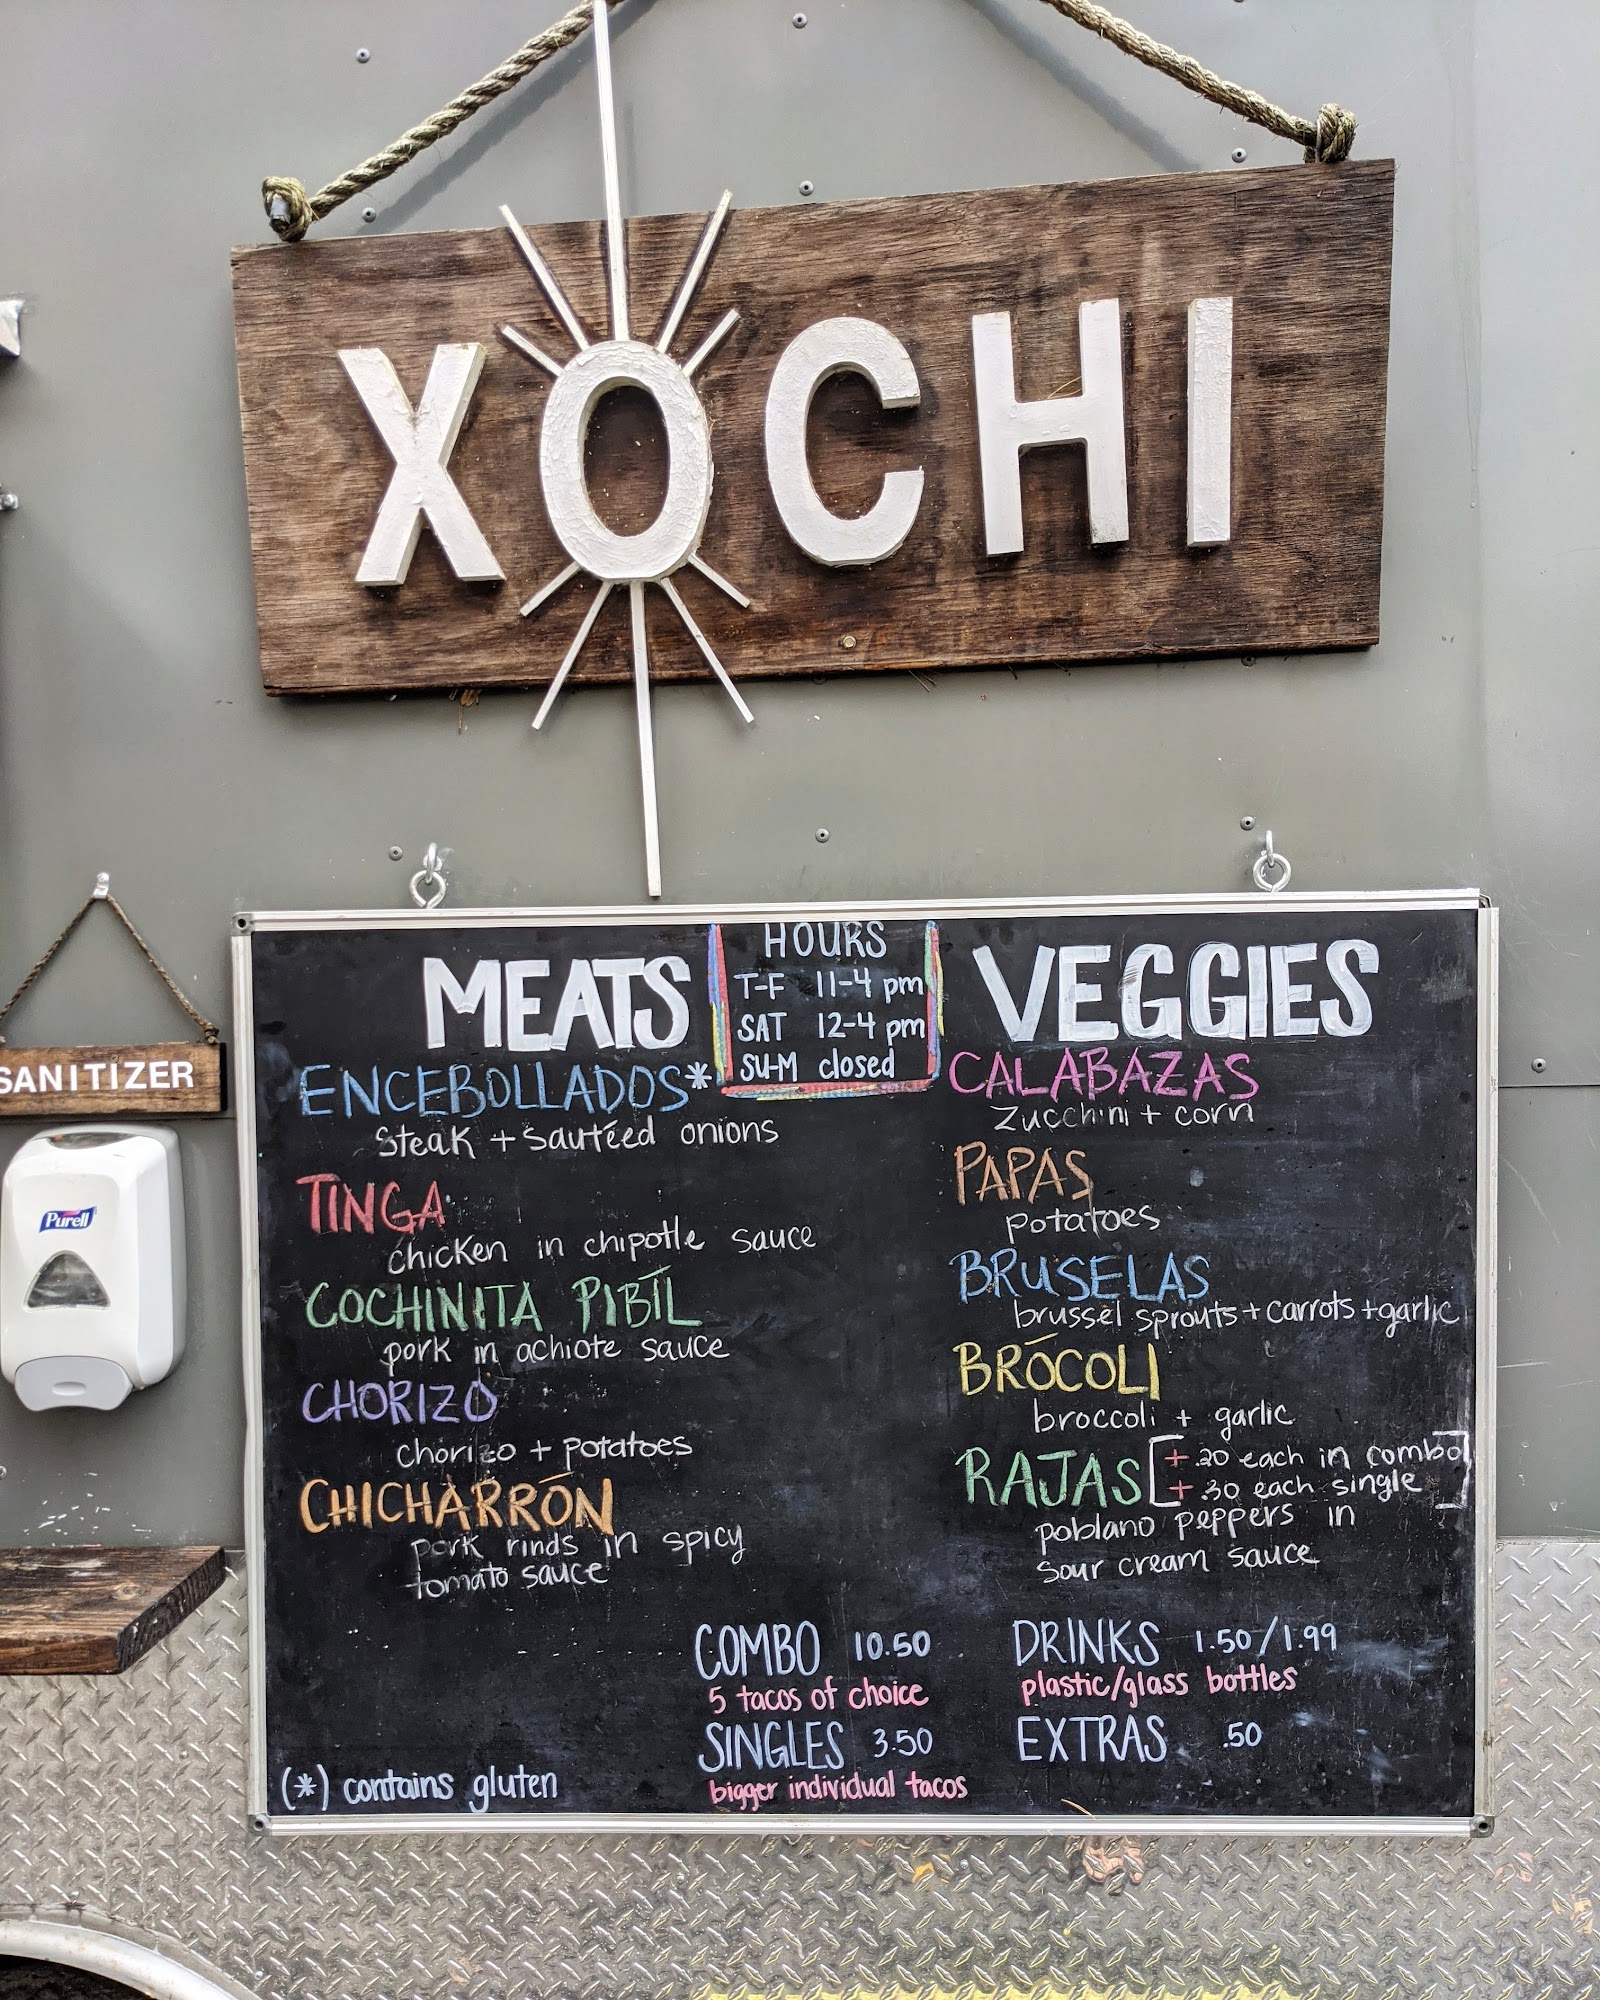 XOCHI
SANITIZER
Purell
HOURS
T-F 11-4 pm
SAT 12-4 pm
SU-M closed
MEATS
ENCEBOLLADOS*
steak + sautéed onions
TINGA
chicken in chipotle sauce
COCHINITA PIBÍL
pork in achiote sauce
CHORIZO
chorizo + potatoes
CHICHARRÓN
pork rinds in spicy
tomato sauce
VEGGIES
CALABAZAS
zucchini + corn
PAPAS
potatoes
BRUSELAS
brussel sprouts + carrots + garlic
BRÓCOLI
broccoli + garlic
RAJAS [+ .20 each in combo
+ .30 each single]
poblano peppers in
sour cream sauce
COMBO 10.50
5 tacos of choice
SINGLES 3.50
bigger individual tacos
DRINKS 1.50/1.99
plastic/glass bottles
EXTRAS .50
(*) contains gluten